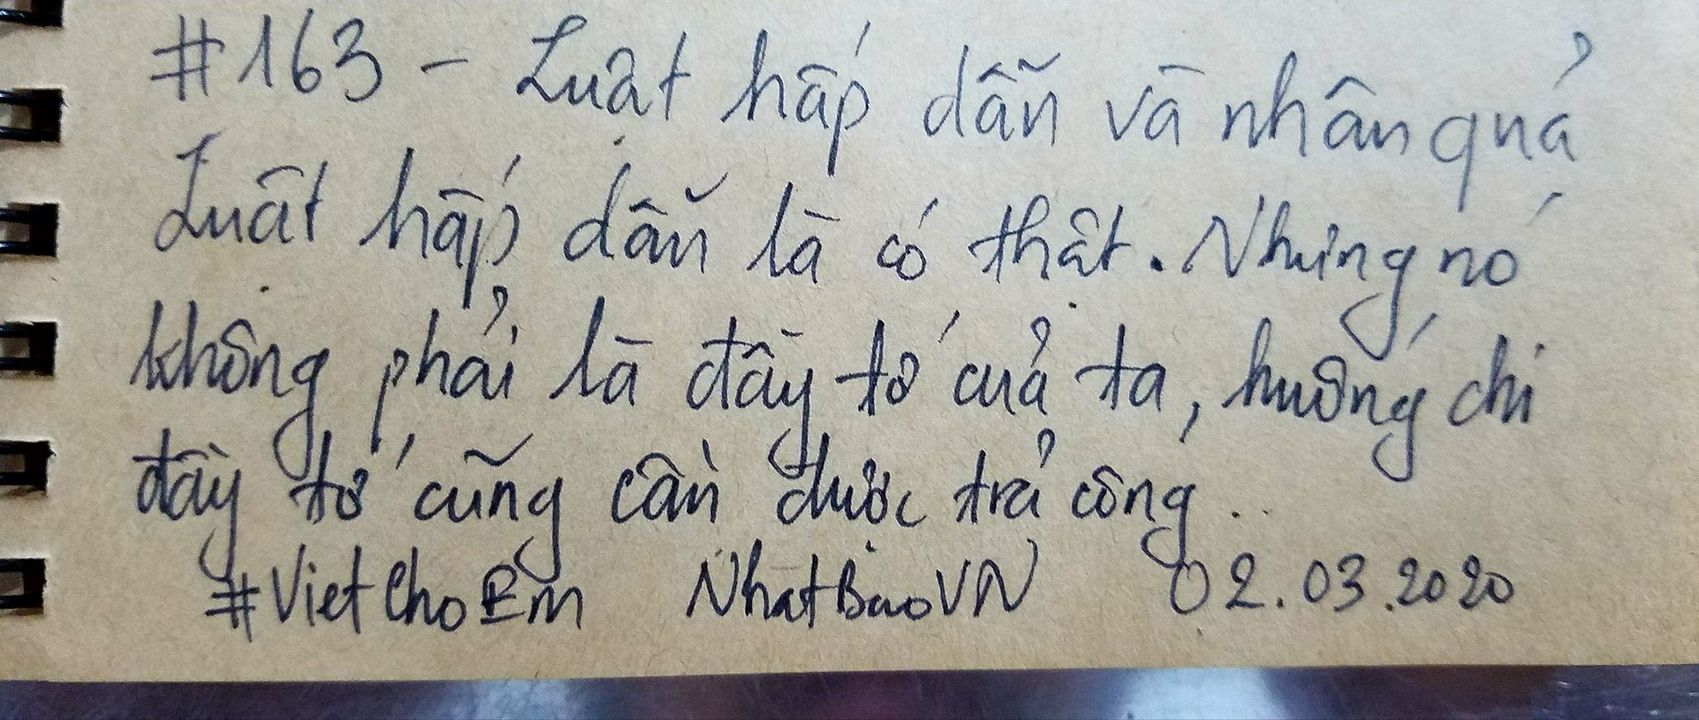 #163 - Luật hấp dẫn và nhân quả
Luật hấp dẫn là có thật. Nhưng nó
không phải là đầy tớ của ta, huống chi
đầy tớ cũng cần được trả công..
#VietChoEm NhatBaoVN 02.03.2020